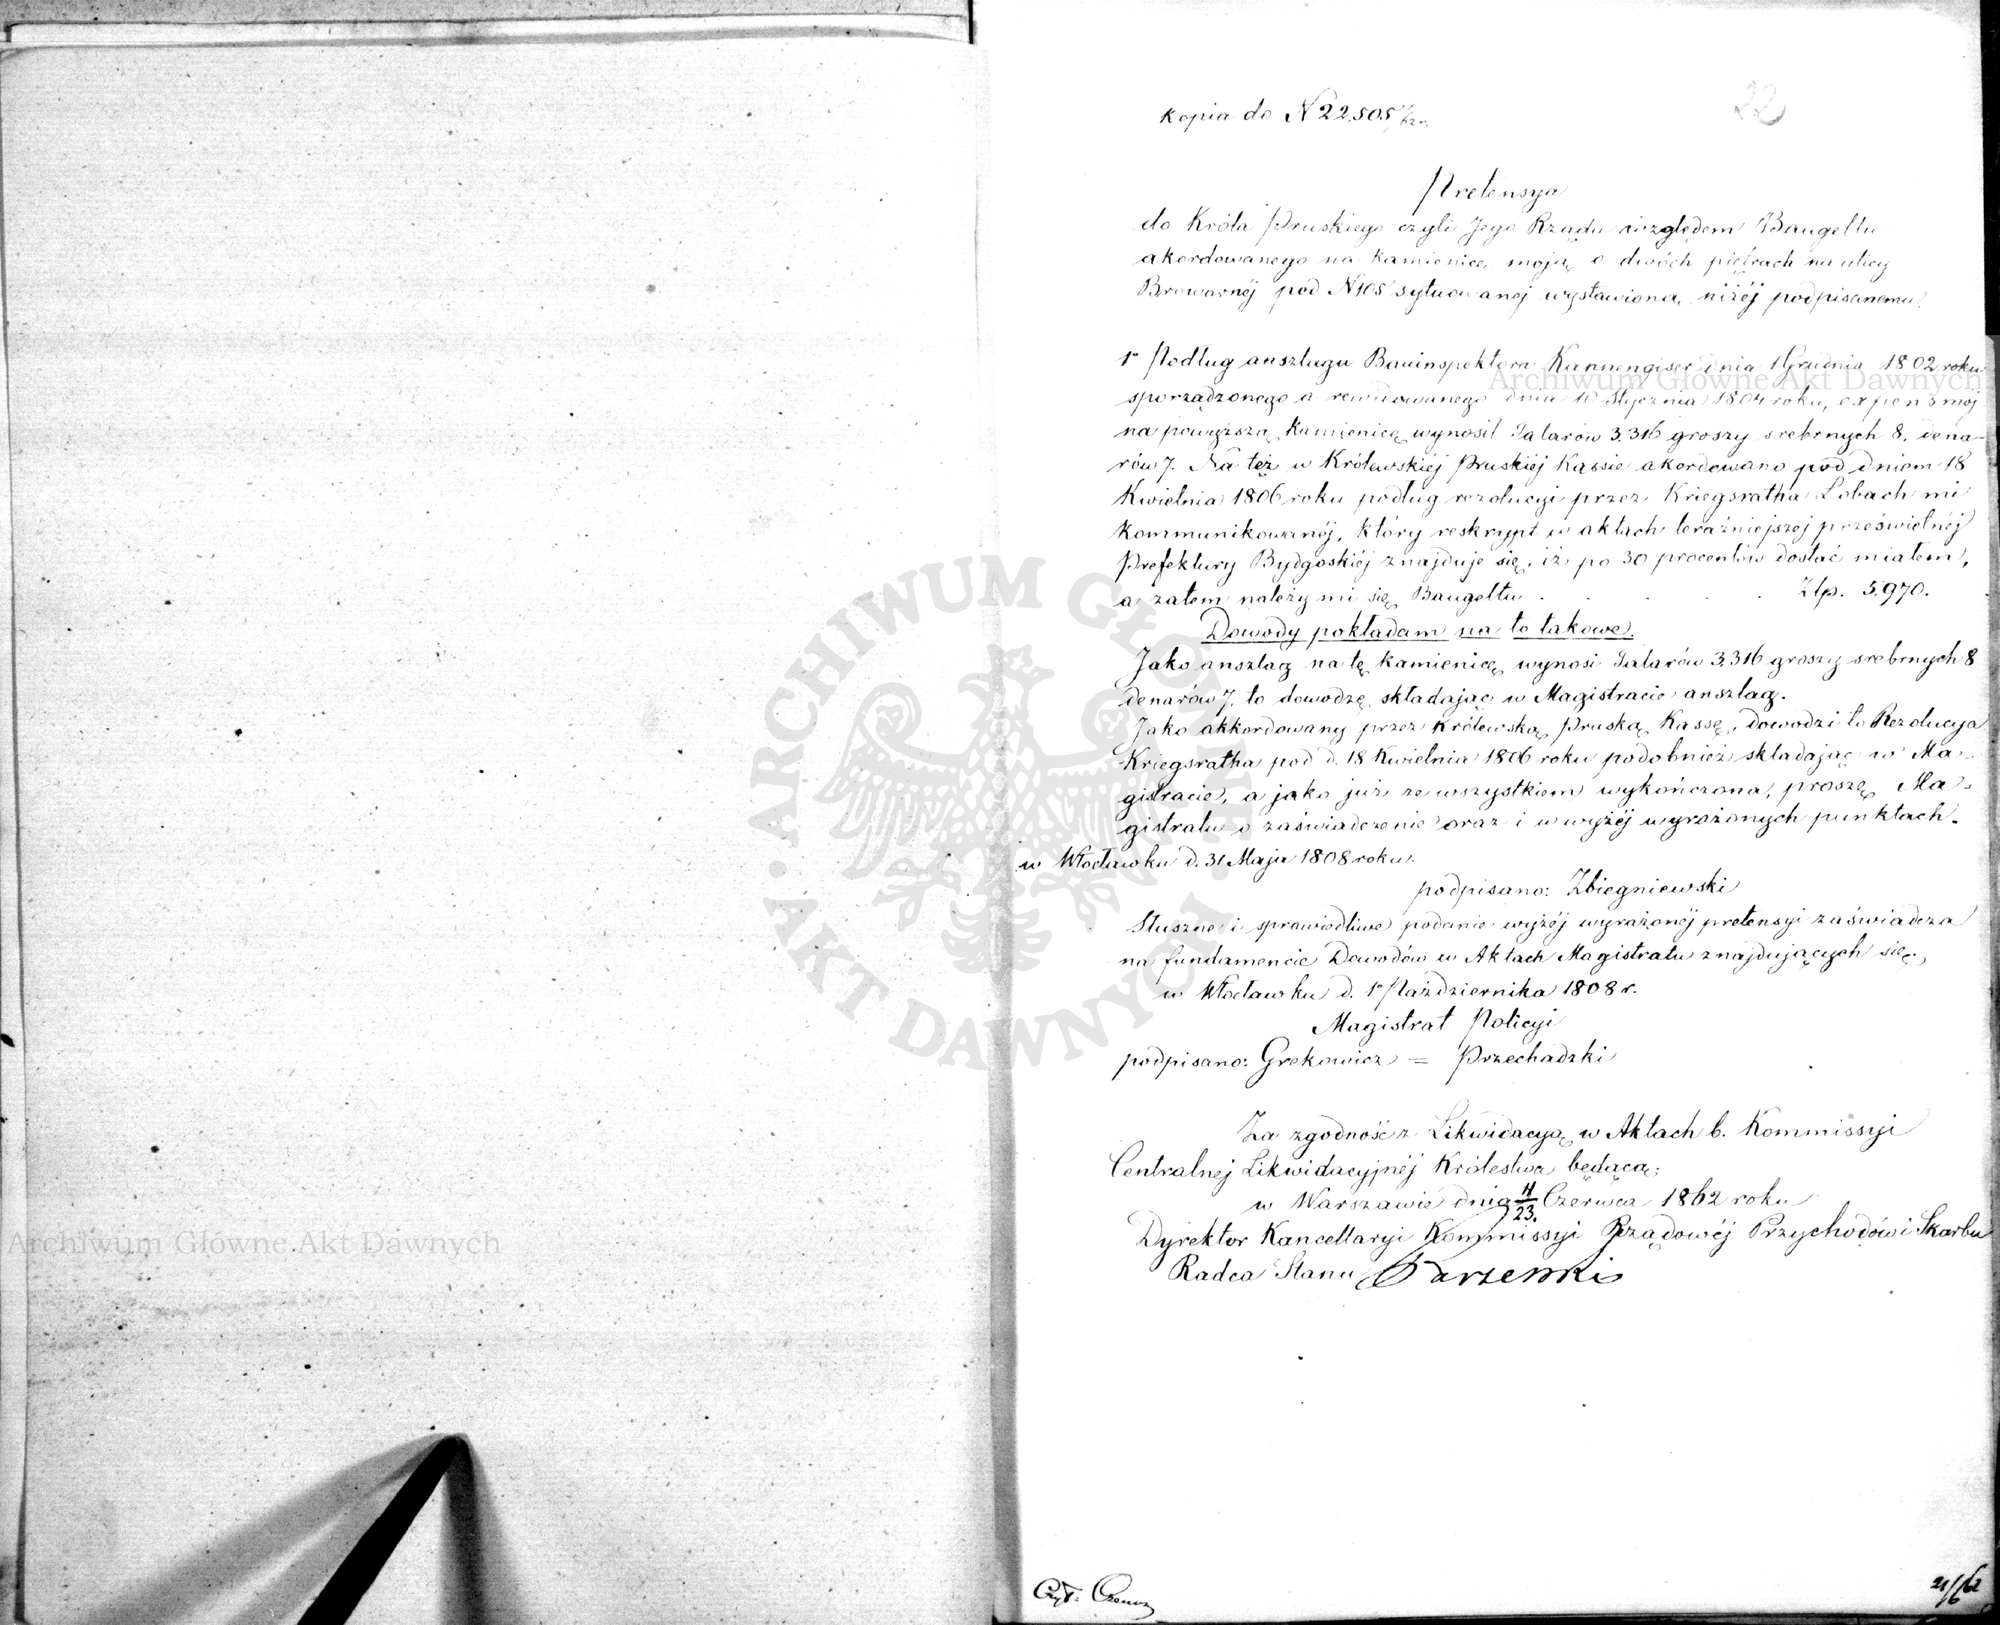 22
kopia do N 22,505/62 r.
Pretensya
do Króla Pruskiego czyli Jego Rządu względem Baugeltu
akordowanego na kamienicę moją o dwóch piętrach na ulicy
Browarnéj pod N 105 sytuowanéj wystawioną niżéj podpisanemu.
1º Podług anszlagu Bauinspektora Kannengiser dnia 1 Grudnia 1802 roku
sporządzonego a rewidowanego dnia 10 Stycznia 1804 roku, expens mój
na powyższą Kamienicę wynosił Talarów 3,316 groszy srebrnych 8. dena-
rów 7. Na téż w Królewskiéj Pruskiéj Kassie akordowano pod dniem 18
Kwietnia 1806 roku podług rezolucyi przez Kriegsratha Lobach mi
Kommunikowanéj, który reskrypt w aktach teraźniejszej prześwietnéj
Prefektury Bydgoskiéj znajduje się, iż po 30 procentów dostać miałem,
a zatem należy mi się Baugeltu . . . . . Złp. 5,970.
Dowody pokładam na to takowe.
Jako anszlag na tę kamienicę wynosi Talarów 3,316 groszy srebrnych 8
denarów 7. to dowodzę składając w Magistracie anszlag.
Jako akkordowany przez Królewską Pruską Kassę, dowodzi to Rezolucya
Kriegsratha pod d. 18 Kwietnia 1806 roku podobnież składając w Ma-
gistracie, a jako już ze wszystkiem wykończona, proszę Ma-
gistratu o zaświadczenie oraz i w wyżéj wyrażonych punktach.
w Włocławku d. 31 Maja 1808 roku.
podpisano: Zbiegniewski
Słuszne i sprawiedliwe podanie wyżéj wyrażonéj pretensyi zaświadcza
na fundamencie Dowodów w Aktach Magistratu znajdujących się,
w Włocławku d. 1º Października 1808 r.
Magistrat Policyi
podpisano: Grekowicz = Przechadzki
Za zgodność z Likwidacyą w Aktach b. Kommissyi
Centralnej Likwidacyjnéj Królestwa będącą;
w Warszawie dnia 11/23. Czerwca 1862 roku
Dyrektor Kancellaryi Kommissyi Rządowéj Przychodów i Skarbu
Radca Stanu
Czyt:
21/6 62
Archiwum Główne Akt Dawnych
Archiwum Główne Akt Dawnych
ARCHIWUM GŁÓWNE AKT DAWNYCH